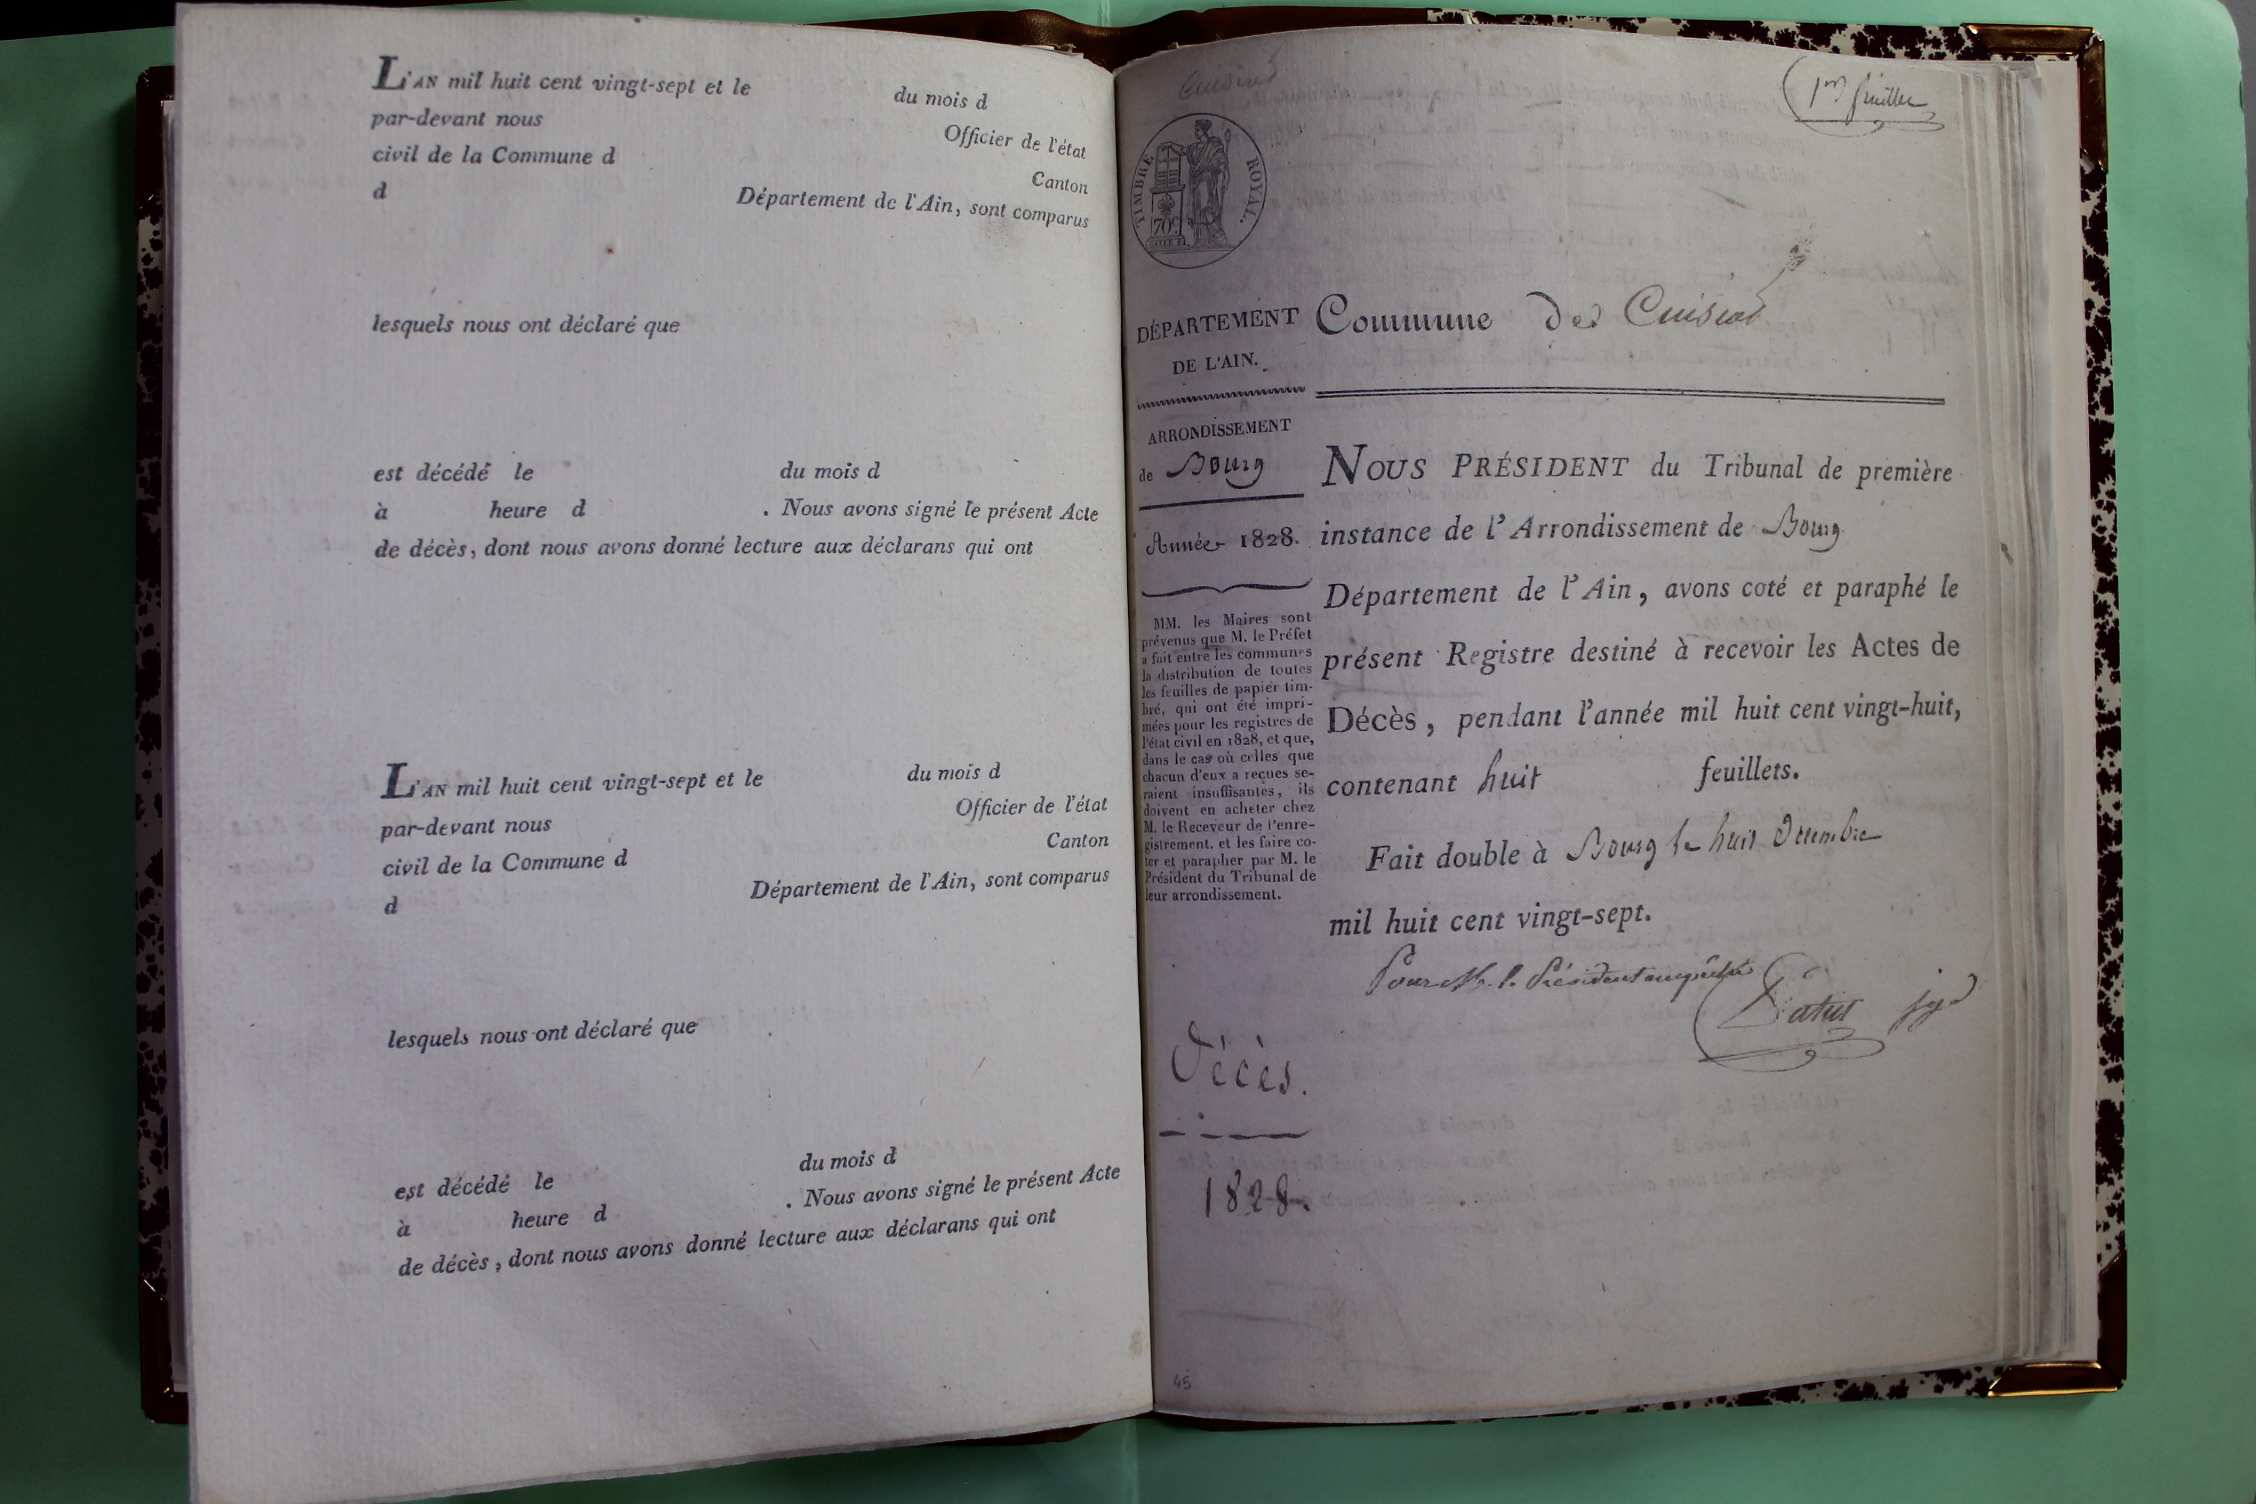 L'AN mil huit cent vingt-sept et le du mois d
par-devant nous Officier de l'état
civil de la Commune d Canton
d Département de l'Ain, sont comparus
lesquels nous ont déclaré que
est décédé le du mois d
à heure d . Nous avons signé le présent Acte
de décès, dont nous avons donné lecture aux déclarans qui ont
L'AN mil huit cent vingt-sept et le du mois d
par-devant nous Officier de l'état
civil de la Commune d Canton
d Département de l'Ain, sont comparus
lesquels nous ont déclaré que
est décédé le du mois d
à heure d . Nous avons signé le présent Acte
de décès, dont nous avons donné lecture aux déclarans qui ont
Cuisiat
1er feuillet
TIMBRE ROYAL.
70c
DÉPARTEMENT
DE L'AIN.
ARRONDISSEMENT
de Bourg
Année 1828.
MM. les Maires sont
prévenus que M. le Préfet
a fait entre les communes
la distribution de toutes
les feuilles de papier tim-
bré, qui ont été impri-
mées pour les registres de
l'état civil en 1828, et que,
dans le cas où celles que
chacun d'eux a reçues se-
raient insuffisantes, ils
doivent en acheter chez
M. le Receveur de l'enre-
gistrement, et les faire co-
ter et parapher par M. le
Président du Tribunal de
leur arrondissement.
Décès.
1828.
45
Commune de Cuisiat
NOUS PRÉSIDENT du Tribunal de première
instance de l'Arrondissement de Bourg
Département de l'Ain, avons coté et paraphé le
présent Registre destiné à recevoir les Actes de
Décès, pendant l'année mil huit cent vingt-huit,
contenant huit feuillets.
Fait double à Bourg le huit Décembre
mil huit cent vingt-sept.
Pour M. le Président empêché
juge